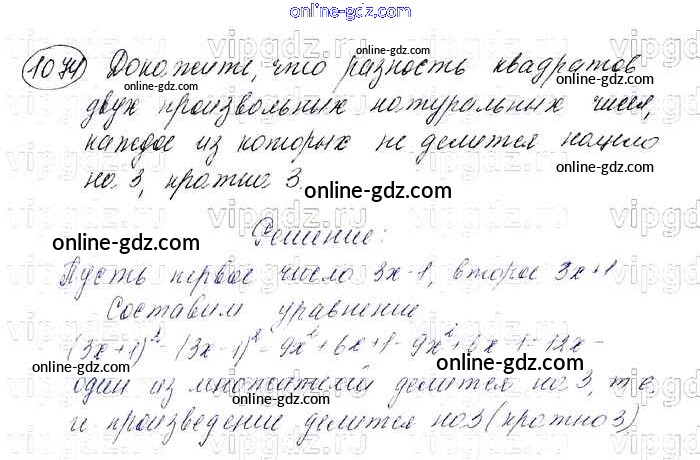 online-gdz.com
1074) Докажите, что разность квадратов
online-gdz.com
online-gdz.com
двух произвольных натуральных чисел,
каждое из которых не делится нацело
на 3, кратна 3.
online-gdz.com
online-gdz.com
Решение:
Пусть первое число 3x-1, второе 3x+1
Составим уравнение
(3x+1)² - (3x-1)² = 9x² + 6x + 1 - 9x² + 6x - 1 = 12x -
online-gdz.com
один из множителей делится на 3, т.е.
и произведение делится на 3 (кратно 3)
online-gdz.com
online-gdz.com